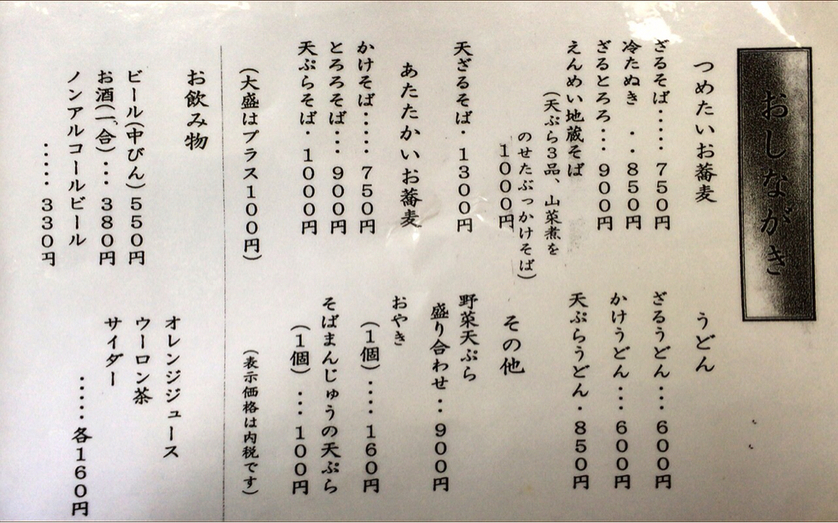 おしながき
つめたいお蕎麦
ざるそば・・・・・750円
冷たぬき　・・850円
ざるとろろ・・・900円
えんめい地蔵そば
（天ぷら3品、山菜煮を
のせたぶっかけそば）
1000円
天ざるそば・1300円
あたたかいお蕎麦
かけそば・・・・・750円
とろろそば・・・900円
天ぷらそば・1000円
（大盛はプラス100円）
うどん
ざるうどん・・・600円
かけうどん・・・600円
天ぷらうどん・850円
その他
野菜天ぷら
盛り合わせ・・900円
おやき
（1個）・・・・160円
そばまんじゅうの天ぷら
（1個）・・・100円
（表示価格は内税です）
お飲み物
ビール（中びん）550円
お酒（一合）・・・380円
ノンアルコールビール
・・・・・330円
オレンジジュース
ウーロン茶
サイダー
・・・・・各160円